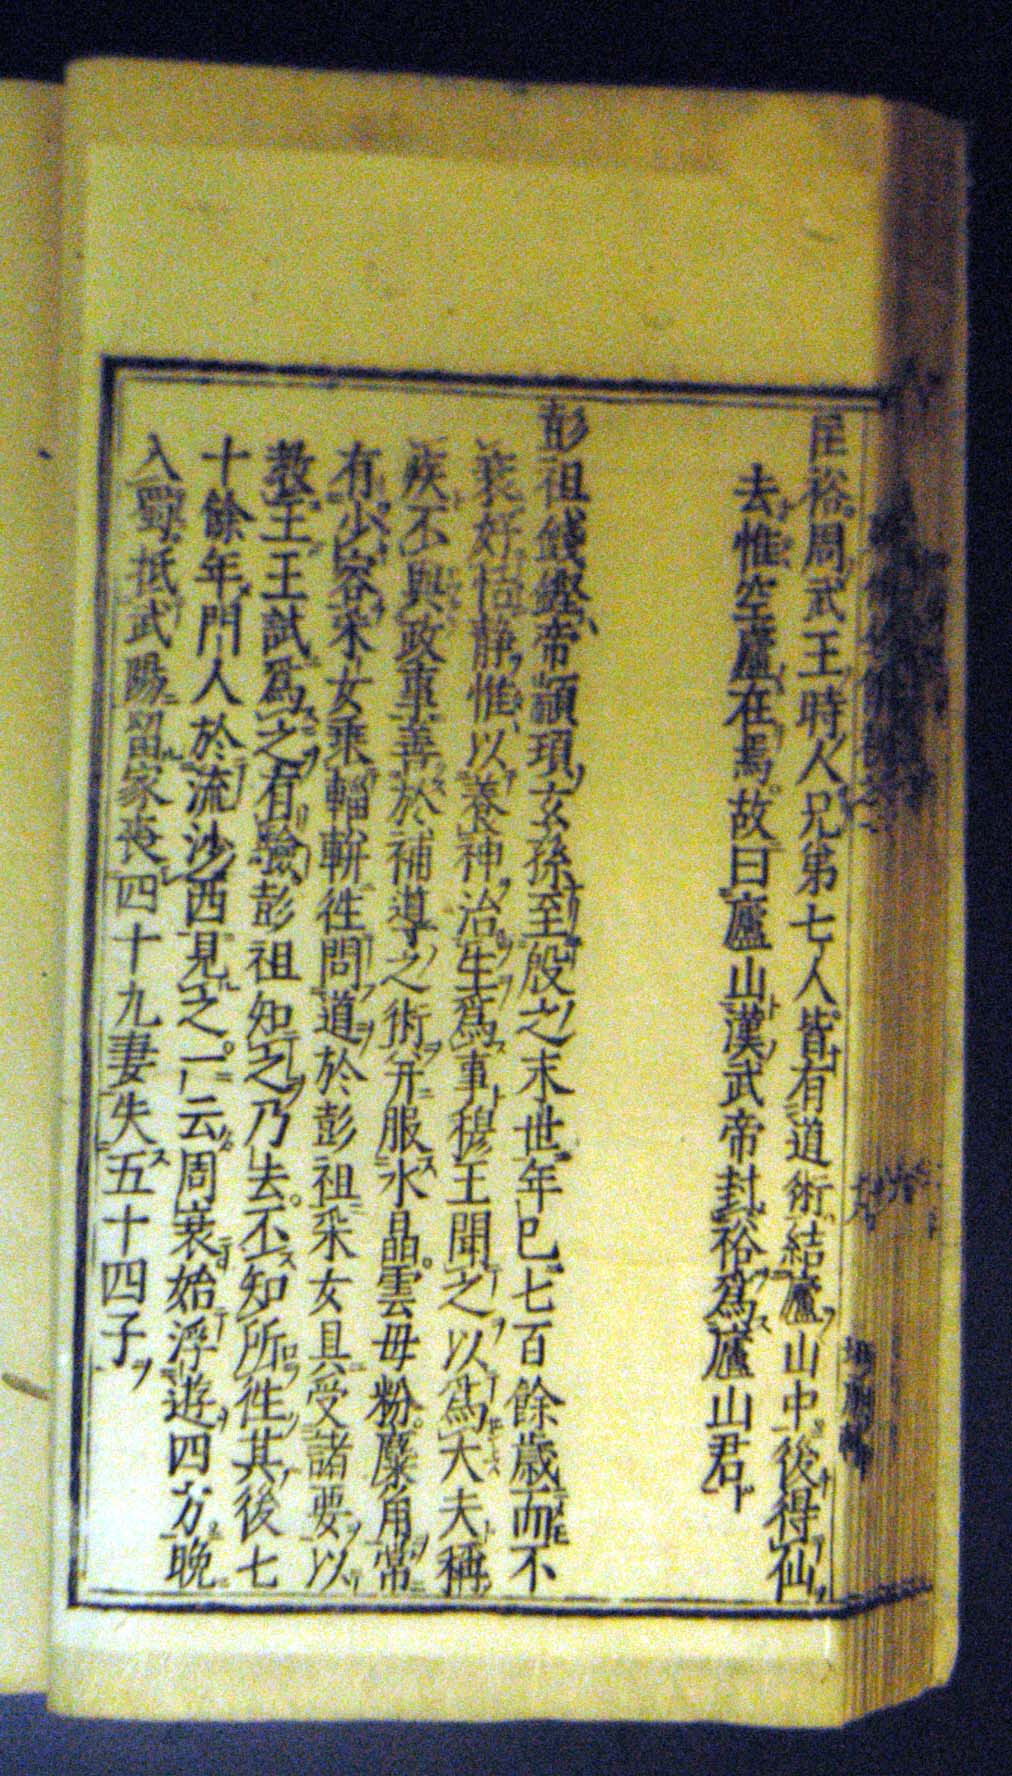 匡裕周武王時人兄弟七人皆有道術結廬山中後得仙
去惟空廬在焉故曰廬山漢武帝封裕為廬山君
彭祖錢鏗帝顓頊玄孫至殷之末世年已七百餘歳而不
衰好恬静惟以養神治生為事穆王聞之以為大夫稱
疾不與政事善於補導之術并服水晶雲母粉麋角常
有少容采女乗輜軿往問道於彭祖采女具受諸要以
教王王試為之有驗彭祖知之乃去不知所往其後七
十餘年門人於流沙西見之一云周衰始浮遊四方晚
入蜀抵武陽留家喪四十九妻失五十四子